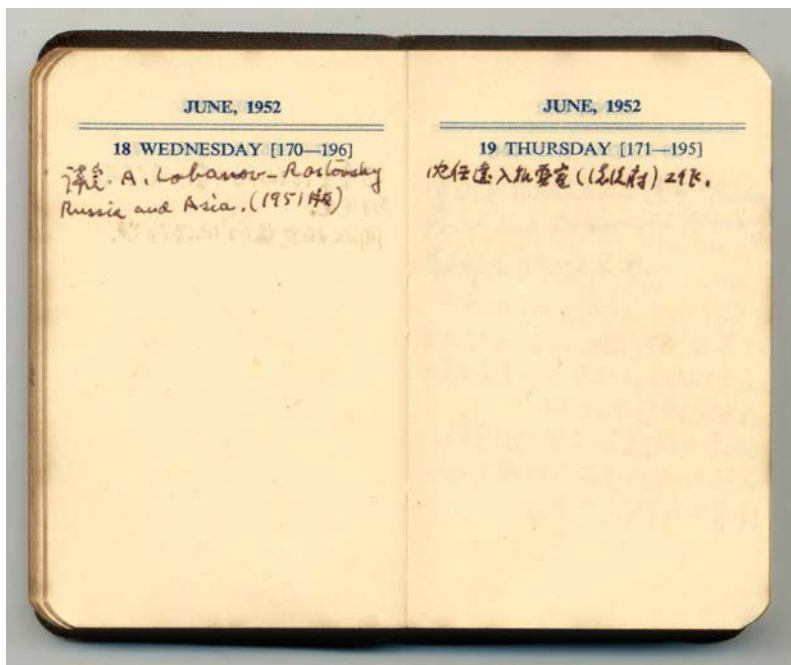 JUNE, 1952
18 WEDNESDAY [170—196]
讀完. A. Lobanov-Rostovsky
Russia and Asia. (1951版)
JUNE, 1952
19 THURSDAY [171—195]
沈任遠入机要室(總統府) 工作.